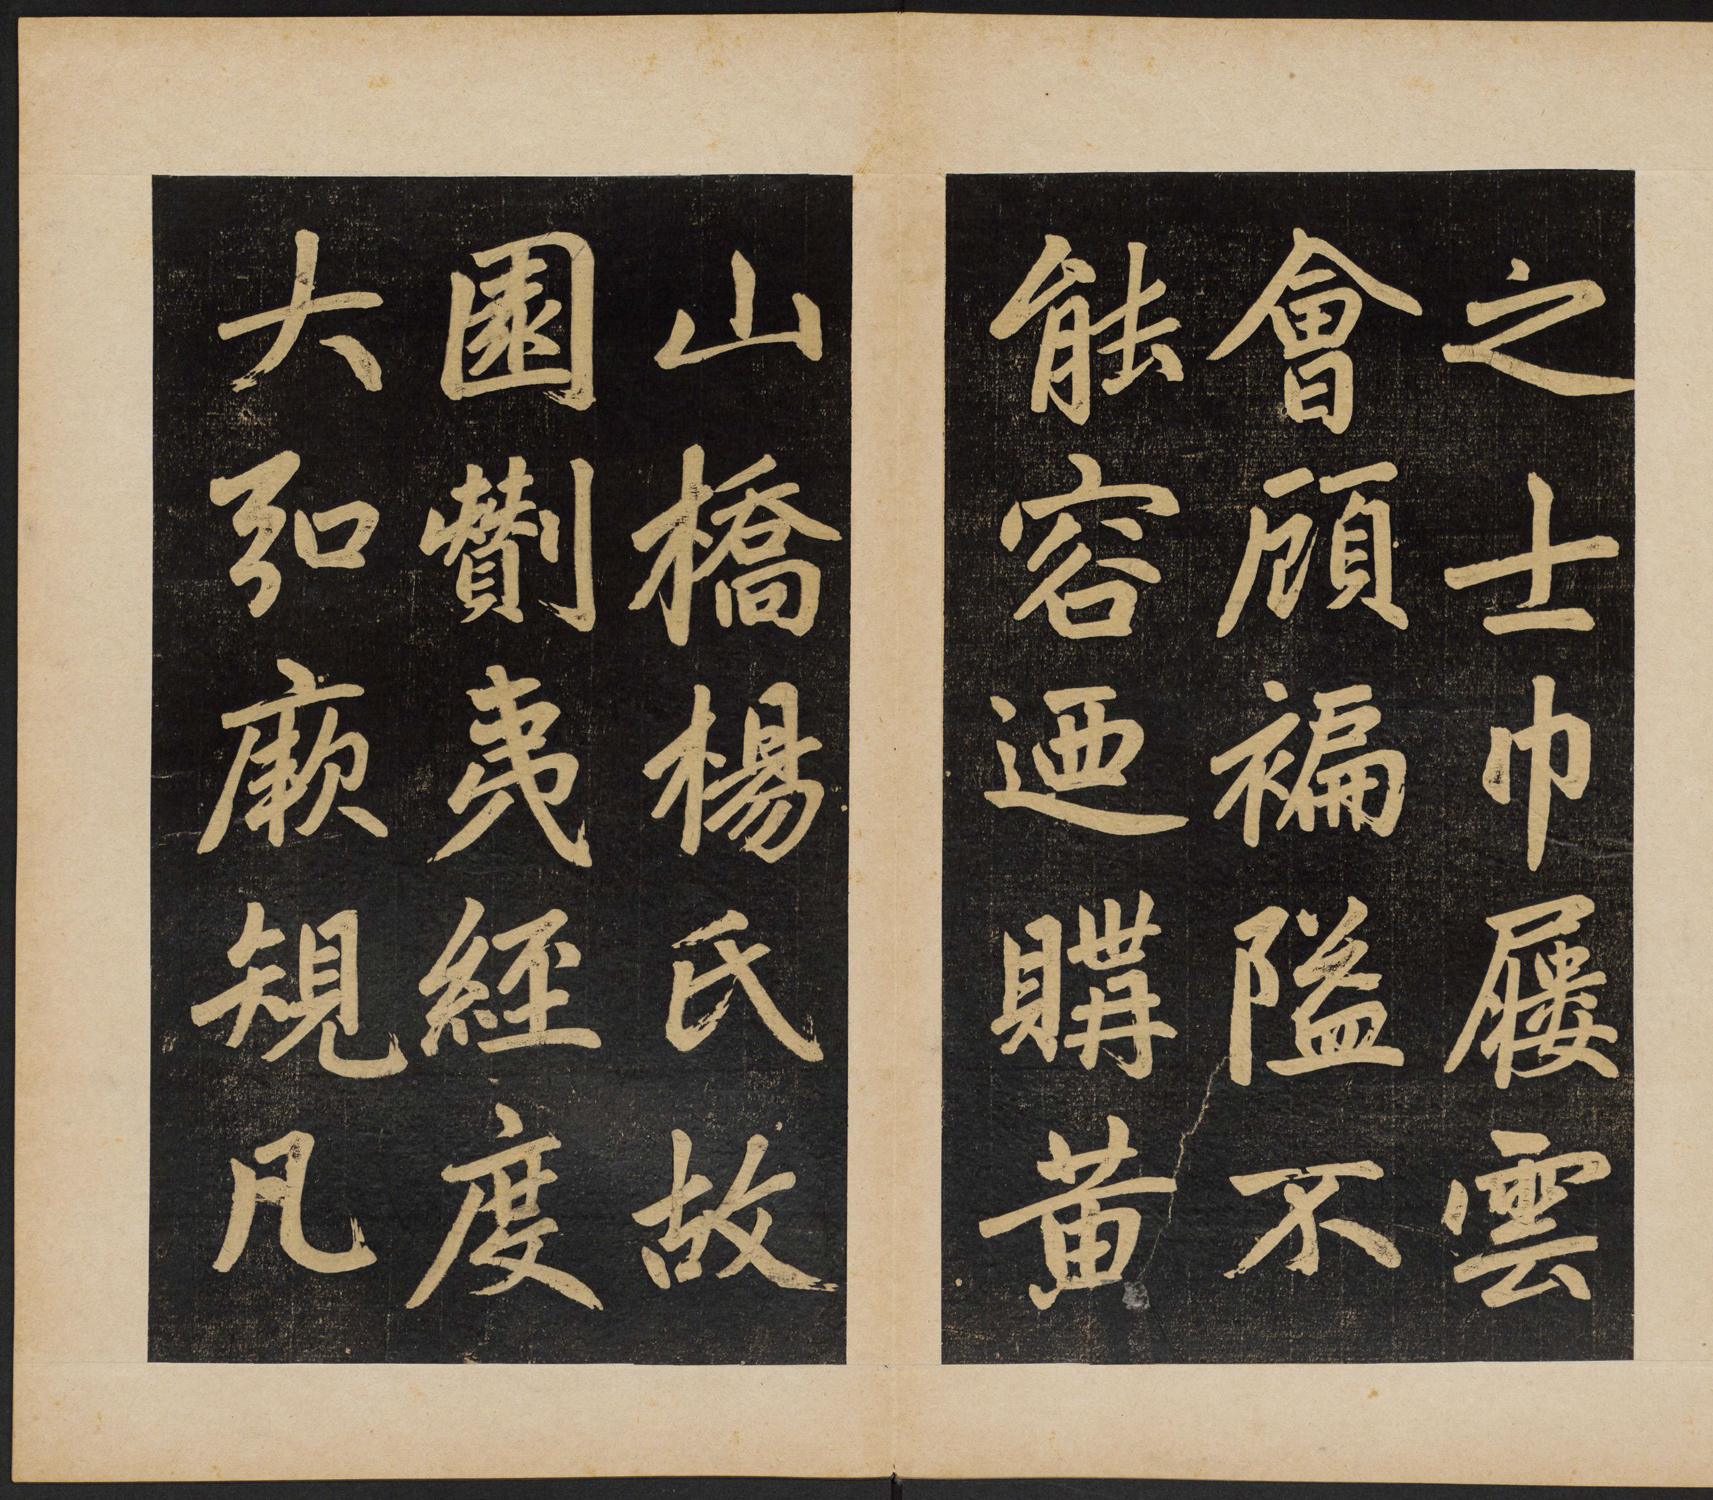 之士巾屨雲
會顧褊隘不
能容迺購黃
山橋楊氏故
園劗夷經度
大弘厥規凡